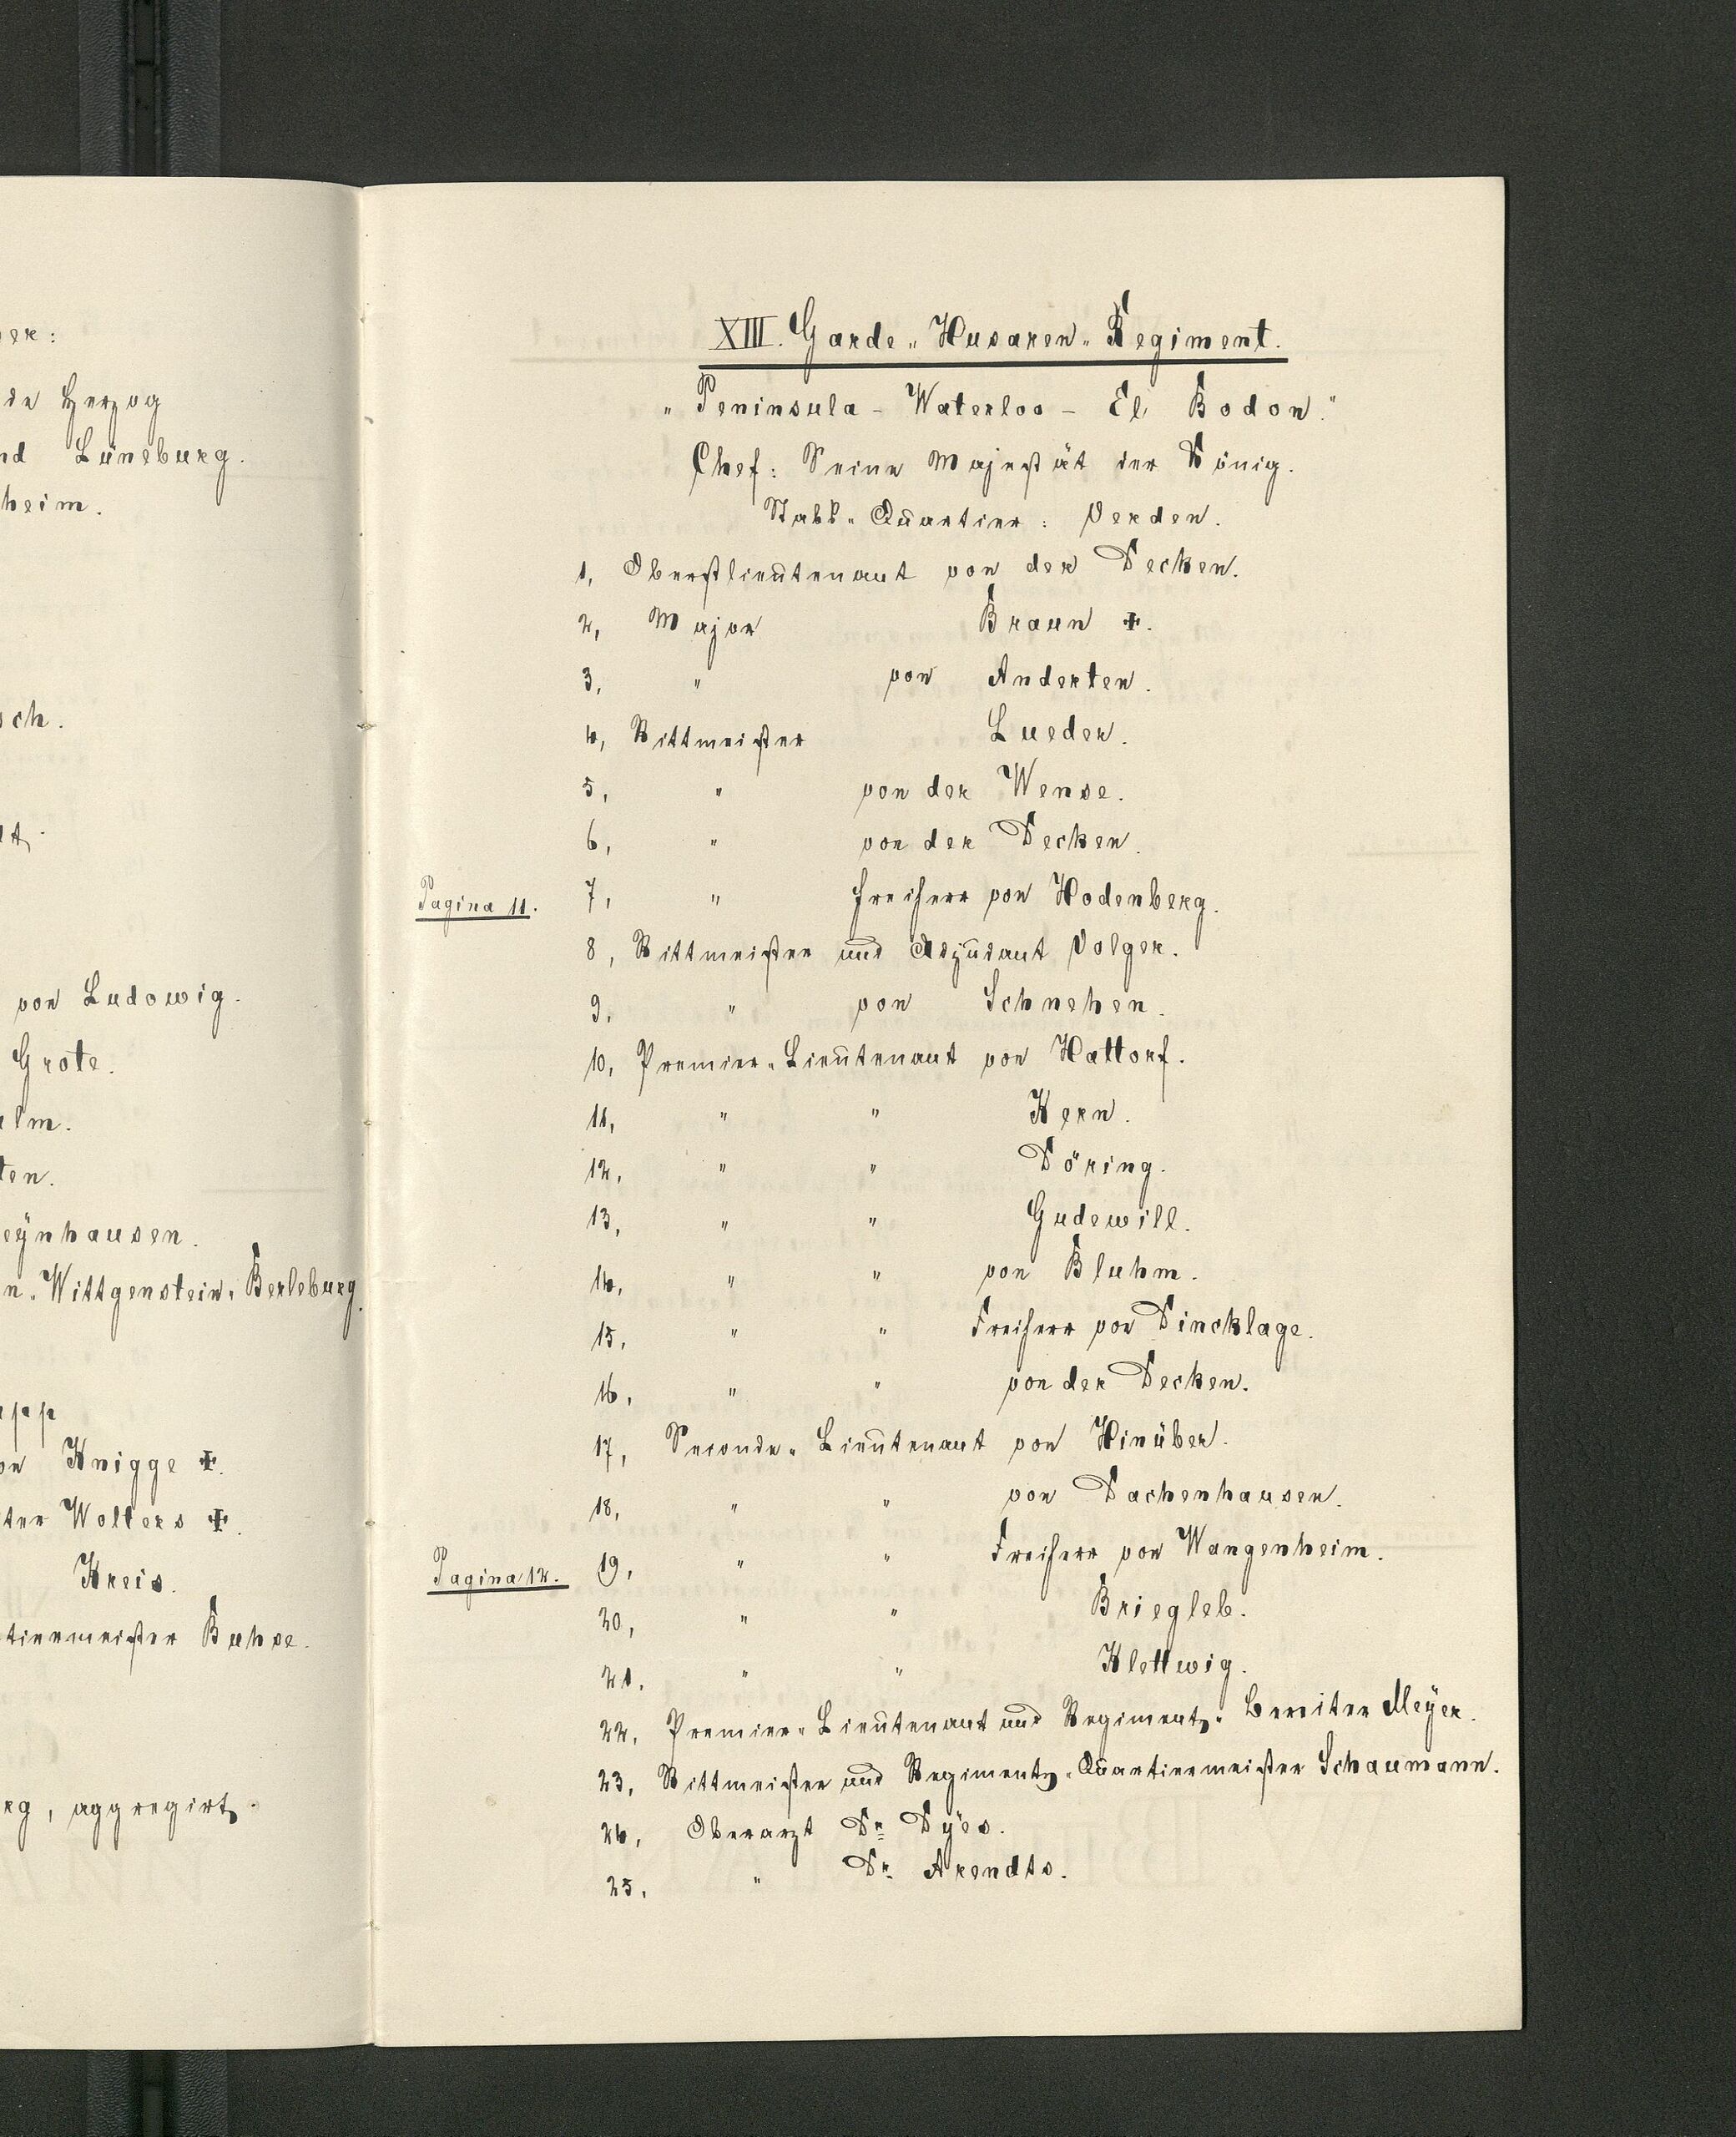 er:
de Herzog
nd Lüneburg.
heim.
sch.
von Ludowig.
Grote.
lm.
ten.
eÿnhausen.
n-Wittgenstein-Berleburg.
on Knigge ✠.
ter Wolters ✠.
Kreis.
tiermeister Buhse.
rg, aggregirt.
XIII. Garde-Husaren-Regiment.
„Peninsula - Waterloo - El Bodon."
Chef: Seine Majestät der König.
Stabs-Quartier: Verden.
1, Oberstlieutenant von der Decken.
2, Major Braun ✠.
3, " von Anderten.
4, Rittmeister Lueder.
5, " von der Wense.
6, " von der Decken.
Pagina 11. 7, " Freiherr von Hodenberg.
8, Rittmeister und Adjudant Volger.
9, " von Schnehen.
10, Premier-Lieutenant von Hattorf.
11, " " Kern.
12, " " Döring.
13, " " Gudewill.
14, " " von Bluhm.
15, " " Freiherr von Dincklage.
16, " " von der Decken.
17, Seconde-Lieutenant von Hinüber.
18, " " von Dachenhausen.
Pagina 12. 19, " " Freiherr von Wangenheim.
20, " " Briegleb.
21, " " Klettwig.
22, Premier-Lieutenant und Regiments-Bereiter Meÿer.
23, Rittmeister und Regiments-Quartiermeister Schaumann.
24, Oberarzt Dr. Dÿes.
25, " Dr. Arendts.